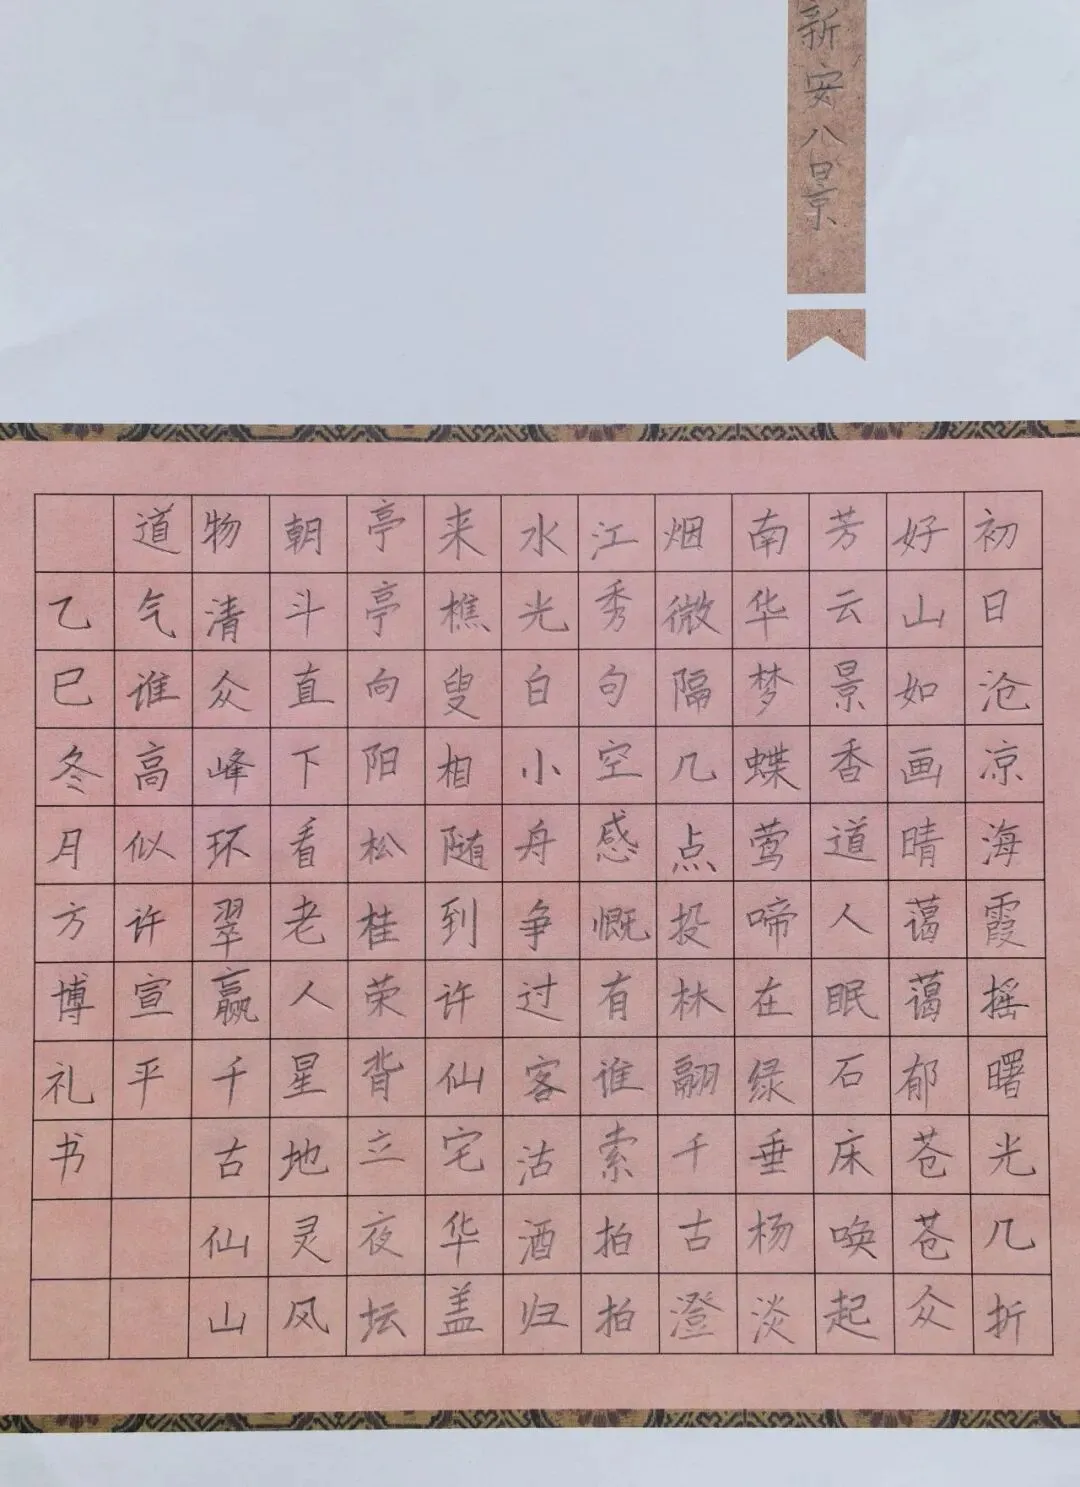 新安八景
初日沧凉海霞摇曙光几折
好山如画晴蔼蔼郁苍苍众
芳云景香道人眠石床唤起
南华梦蝶莺啼在绿垂杨淡
烟微隔几点投林翮千古澄
江秀句空感慨有谁索拍拍
水光白小舟争过客沽酒归
来樵叟相随到许仙宅华盖
亭亭向阳松桂荣背立夜坛
朝斗直下看老人星地灵风
物清众峰环翠赢千古仙山
道气谁高似许宣平
乙巳冬月方博礼书